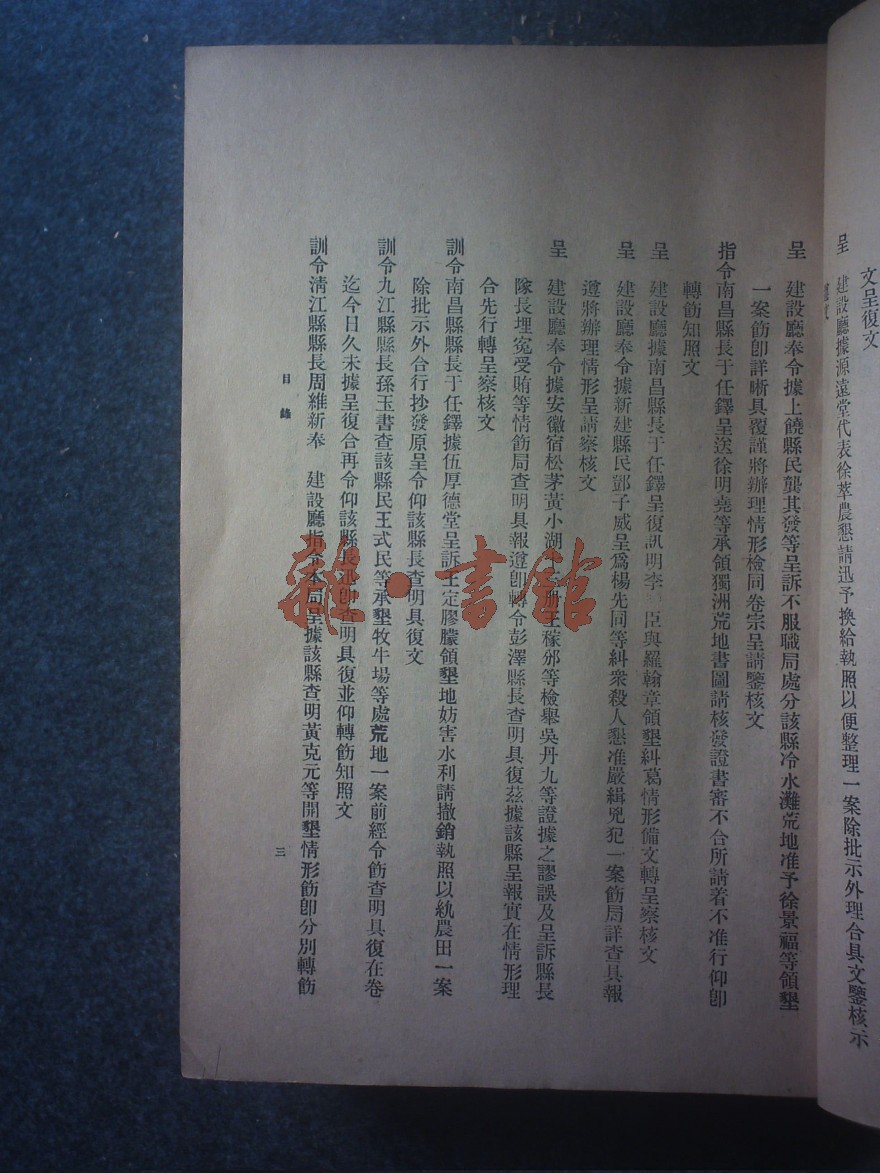 文呈復文
呈　建設廳據源遠堂代表徐萃農懇請迅予換給執照以便整理一案除批示外理合具文鑒核示
呈　建設廳奉令據上饒縣民龔其發等呈訴不服職局處分該縣冷水灘荒地准予徐景福等領墾
一案飭卽詳晰具覆謹將辦理情形檢同卷宗呈請鑒核文
指令南昌縣長于任鐸呈送徐明堯等承領獨洲荒地書圖請核發證書審不合所請着不准行仰卽
轉飭知照文
呈　建設廳據南昌縣長于任鐸呈復訊明李　臣與羅翰章領墾糾葛情形備文轉呈察核文
呈　建設廳奉令據新建縣民鄧子威呈爲楊先同等糾衆殺人懇准嚴緝兇犯一案飭局詳查具報
遵將辦理情形呈請察核文
呈　建設廳奉令據安徽宿松茅黃小湖　册王稼邠等檢舉吳丹九等證據之謬誤及呈訴縣長
隊長埋冤受賄等情飭局查明具報遵卽轉令彭澤縣長查明具復茲據該縣呈報實在情形理
合先行轉呈察核文
訓令南昌縣縣長于任鐸據伍厚德堂呈訴王定膠朦領墾地妨害水利請撤銷執照以紈農田一案
除批示外合行抄發原呈令仰該縣長查明具復文
訓令九江縣縣長孫玉書查該縣民王式民等承墾牧牛場等處荒地一案前經令飭查明具復在卷
迄今日久未據呈復合再令仰該縣長迅卽查明具復並仰轉飭知照文
訓令淸江縣縣長周維新奉　建設廳指令本局呈據該縣查明黃克元等開墾情形飭卽分別轉飭
目錄
三
雜·書館